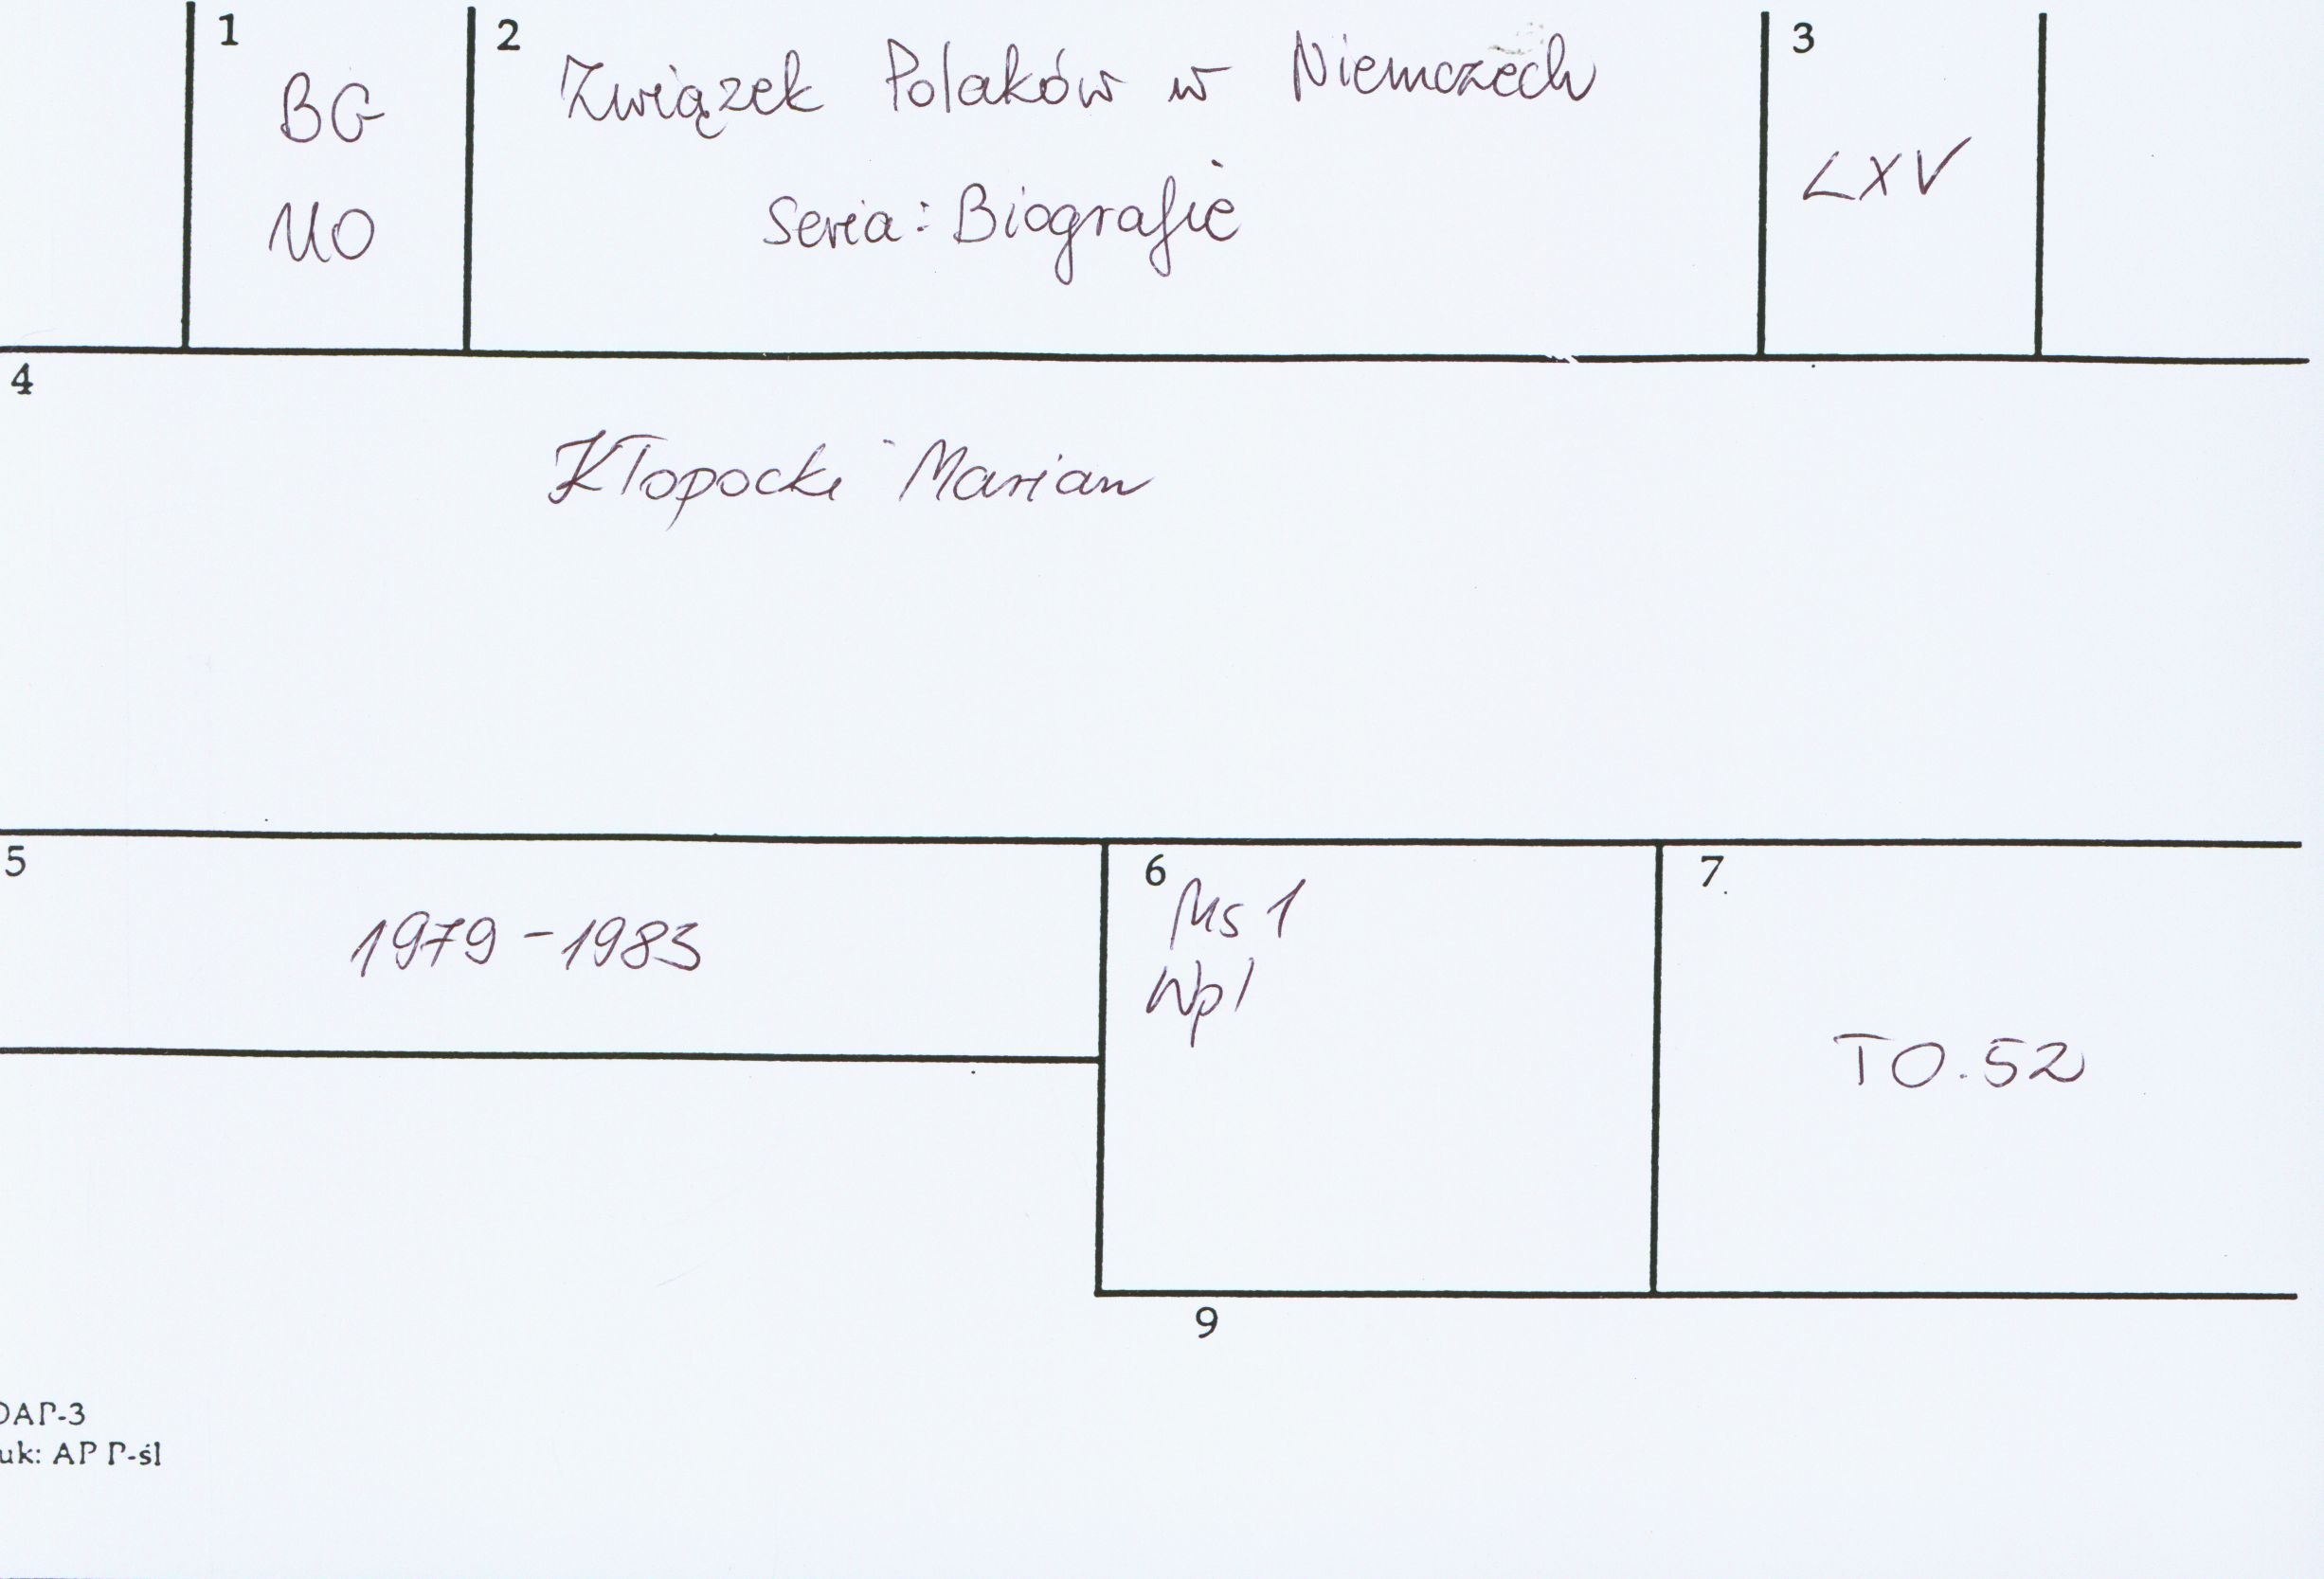 1
BG
UO
2
Związek Polaków w Niemczech
Seria: Biografie
3
LXV
4
Kłopocki Marian
5
1979-1983
6
Ms 1
Wp1
7
TO.52
9
DAP-3
uk: AP P-śl